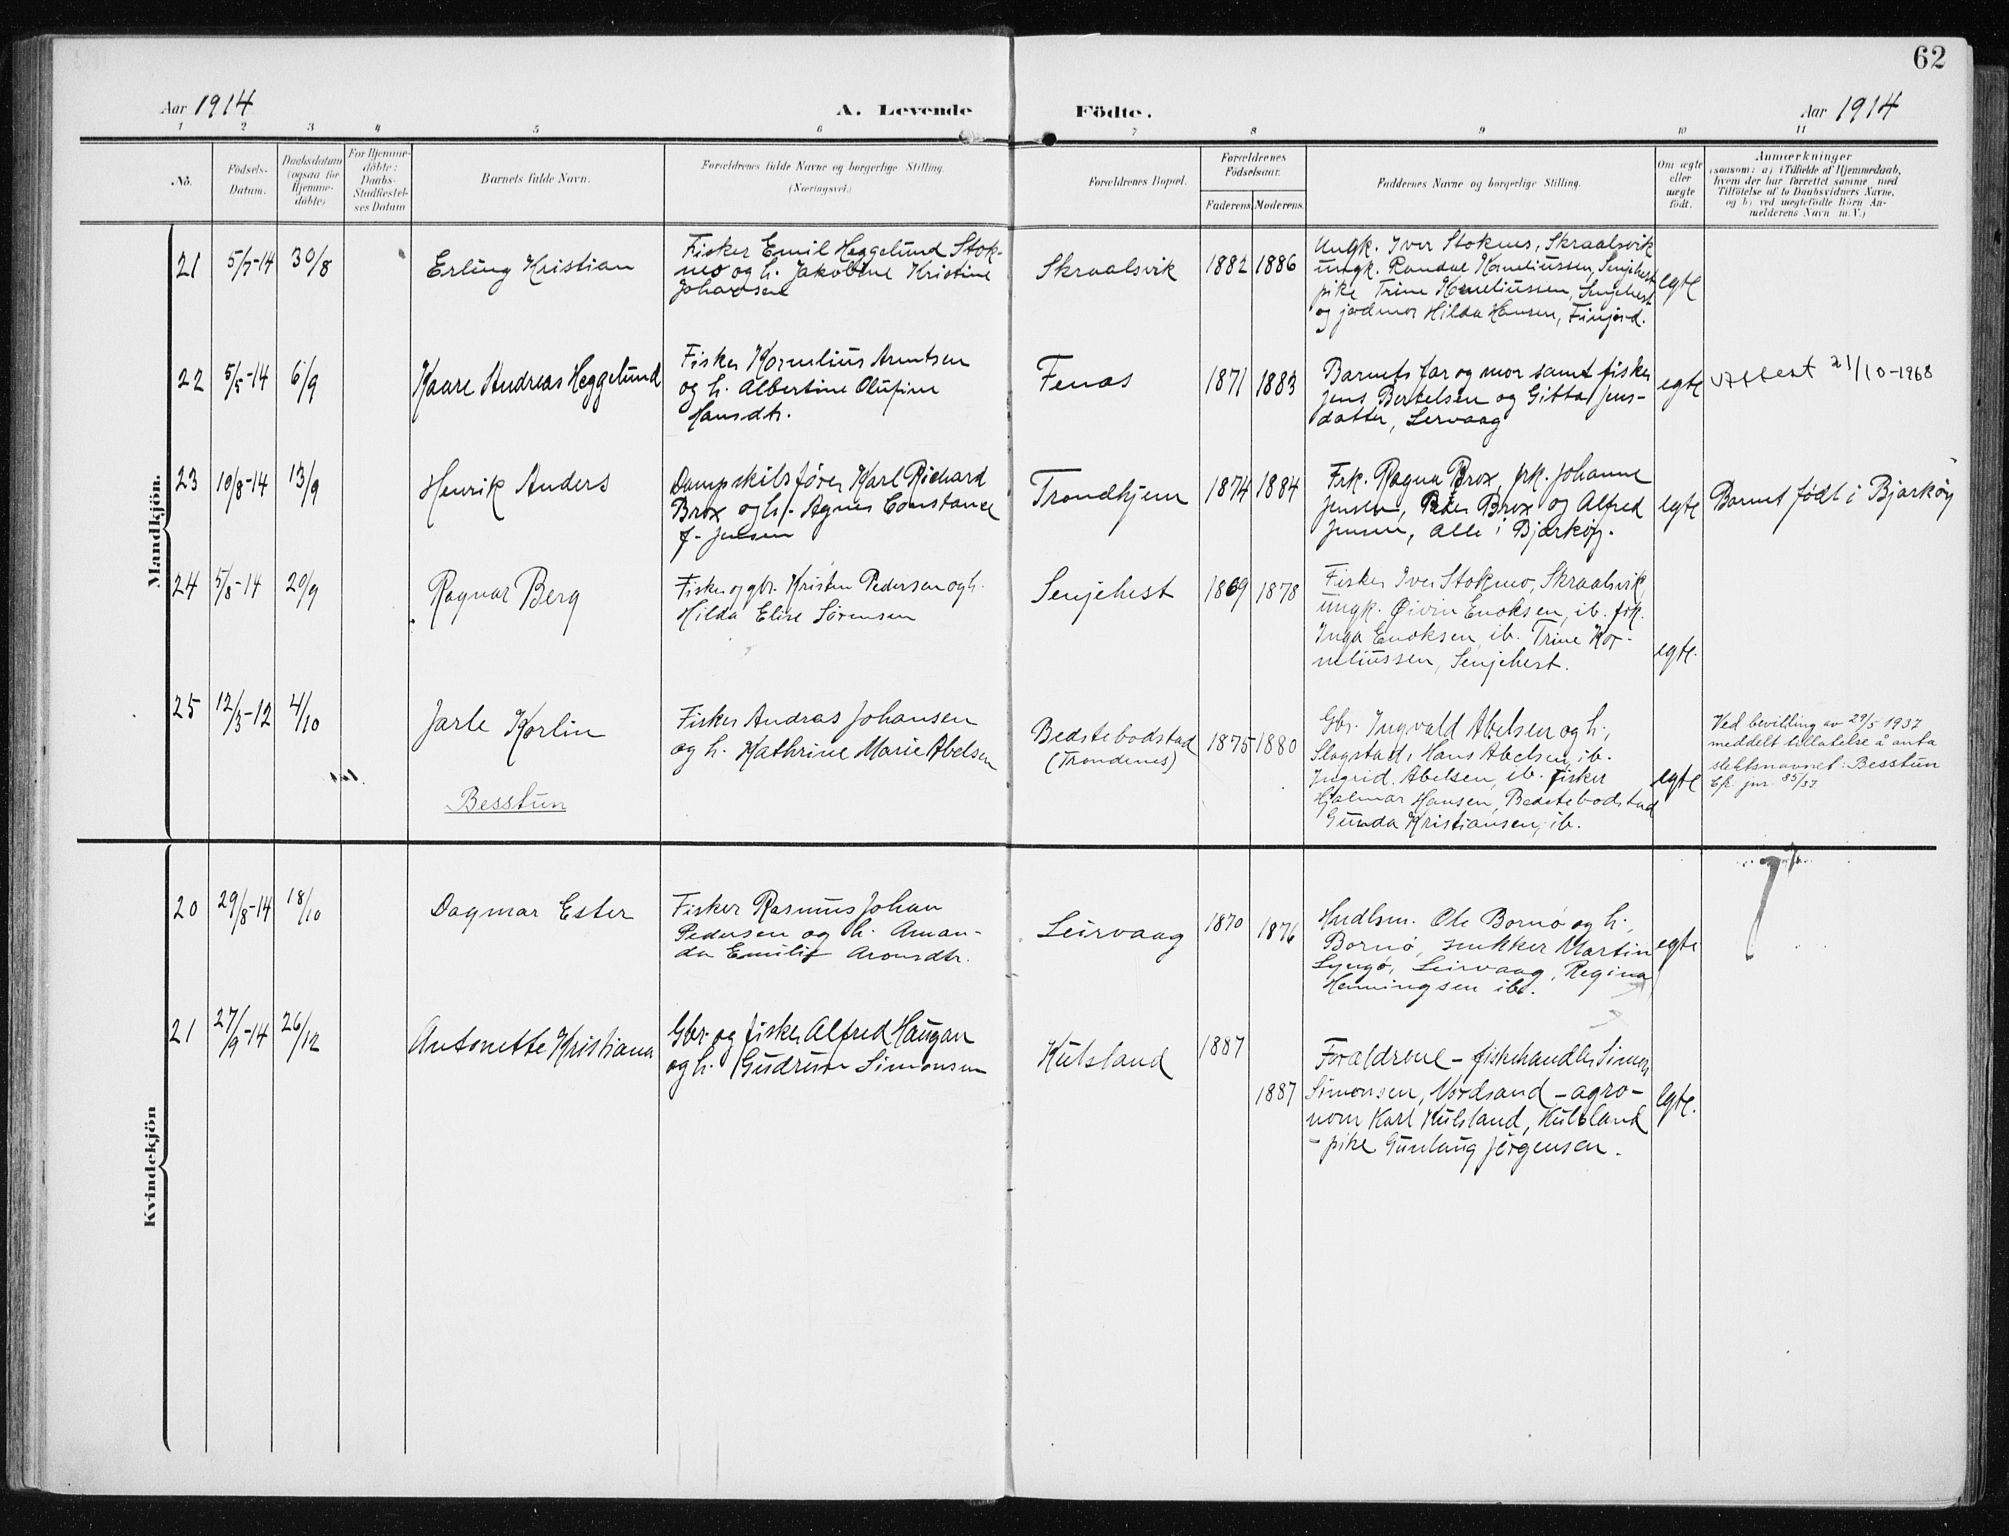 62
Aar 1914
A. Levende Födte.
Aar 1914
1 2 3 4 5 6 7 8 9 10 11
No.
Födsels-
Datum.
Daabsdatum
(ogsaa for
Hjemme-
døbte)
For Hjemme-
döbte:
Daabs-
Stadfæstel-
ses Datum
Barnets fulde Navn.
Forældrenes fulde Navne og borgerlige Stilling.
(Næringsvei.)
Forældrenes Bopæl.
Forældrenes
Födselsaar.
Faderens. Moderens.
Faddernes Navne og borgerlige Stilling.
Om ægte
eller
uægte
födt.
Anmærkninger
(saasom: a) i Tilfælde af Hjemmedaab,
hvem der har forrettet samme med
Tilföielse af to Daabsvidners Navne,
og b) ved uægtefödte Börn An-
melderens Navn m. V.)
Mandkjön.
21
5/7-14
30/8
Erling Kristian
Fisker Emil Heggelund Stok-
mo og h. Jakobine Kristine
Johansen
Skraalsvik
1882
1886
Ungk. Iver Stokmo, Skraalsvik
ungk. Randul Korneliussen, Senjehest
pike Trine Korneliussen, Senjehest
og jordmor Hilda Hansen, Finfjord.
egte
22
5/5-14
6/9
Kaare Andreas Heggelund
Fisker Kornelius Arntsen
og h. Albertine Olufine
Hansdtr.
Fenås
1871
1883
Barnets far og mor samt fisker
Jens Bertelsen og Gitta Jens-
datter, Lervaag
egte
Attest 21/10-1968
23
10/8-14
13/9
Henrik Anders
Dampskibsfører Karl Richard
Brox og h. Agnes Constance
f. Jensen
Trondhjem
1874
1884
Frk. Ragna Brox, frk. Johanne
Jensen, Peter Brox og Alfred
Jensen, alle i Bjarkøy.
egte
Barnet født i Bjarkøy
24
5/8-14
20/9
Ragnar Berg
Fisker og gbr. Kristen Pedersen og h.
Hilda Elise Sørensen
Senjehest
1869
1878
Fisker Iver Stokmo, Skraalsvik,
ungk. Øivin Enoksen, ib. frk.
Inga Enoksen, ib. Trine Kor-
neliussen, Senjehest.
egte.
25
12/3-12
4/10
Jarle Korlin
Besstun
Fisker Andreas Johansen
og h. Kathrine Marie Abelsen
Bedstebodstad
(Trondenes)
1875
1880
Gbr. Ingvald Abelsen og h.
Slagstad, Hans Abelsen, ib.
Ingrid Abelsen, ib. fisker
Hjalmar Hansen, Bedstebodstad
Gunda Kristiansen, ib.
egte
Ved bevilling av 29/5 1937
meddelt tillatelse å anta
slektsnavnet: Besstun
Cfr. jnr. 85/37
Kvindekjön
20
29/8-14
18/10
Dagmar Ester
Fisker Rasmus Johan
Pedersen og h. Aman-
da Emilie Aronsdtr.
Leirvaag
1870
1876
Hndlsm. Ole Bornø og h.
Bornø, snekker Martin
Lyngø, Leirvaag, Regina
Henningsen ib.
egte
21
27/9-14
26/12
Antonette Kristiana
Gbr. og fisker Alfred Haugan
og h. Gudrun Simonsen
Kulsland
1887
1887
Forældrene - fiskehandler Simon
Simonsen, Nordsand - agro-
nom Karl Kulsland, Kulsland
- pike Gunlaug Jørgensen.
egte.